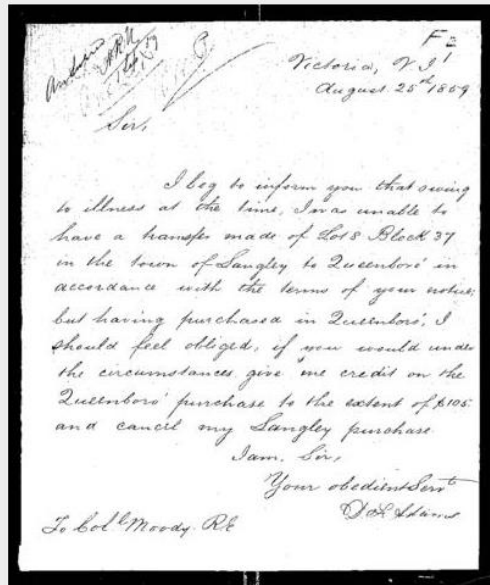 F 2
Answered
Victoria, V I
August 25th 1859
Sir,
I beg to inform you that owing
to illness at the time, I was unable to
have a transfer made of Lot 8 Block 37
in the town of Langley to Queenboro' in
accordance with the terms of your notice;
but having purchased in Queenboro', I
should feel obliged, if you would under
the circumstances give me credit on the
Queenboro' purchase to the extent of $105
and cancel my Langley purchase
I am, Sir,
Your obedient Servt
D L Adams
To Coll Moody. R.E